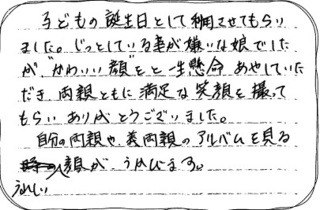 子どもの誕生日として利用させてもらい
ました。じっとしている事が嫌いな娘でした
が"かわいい顔"をと一生懸命あやしていた
だき両親ともに満足な笑顔を撮って
もらいありがとうございました。
自分の両親や、義両親のアルバムを見る
顔がうかびます。
うれしい